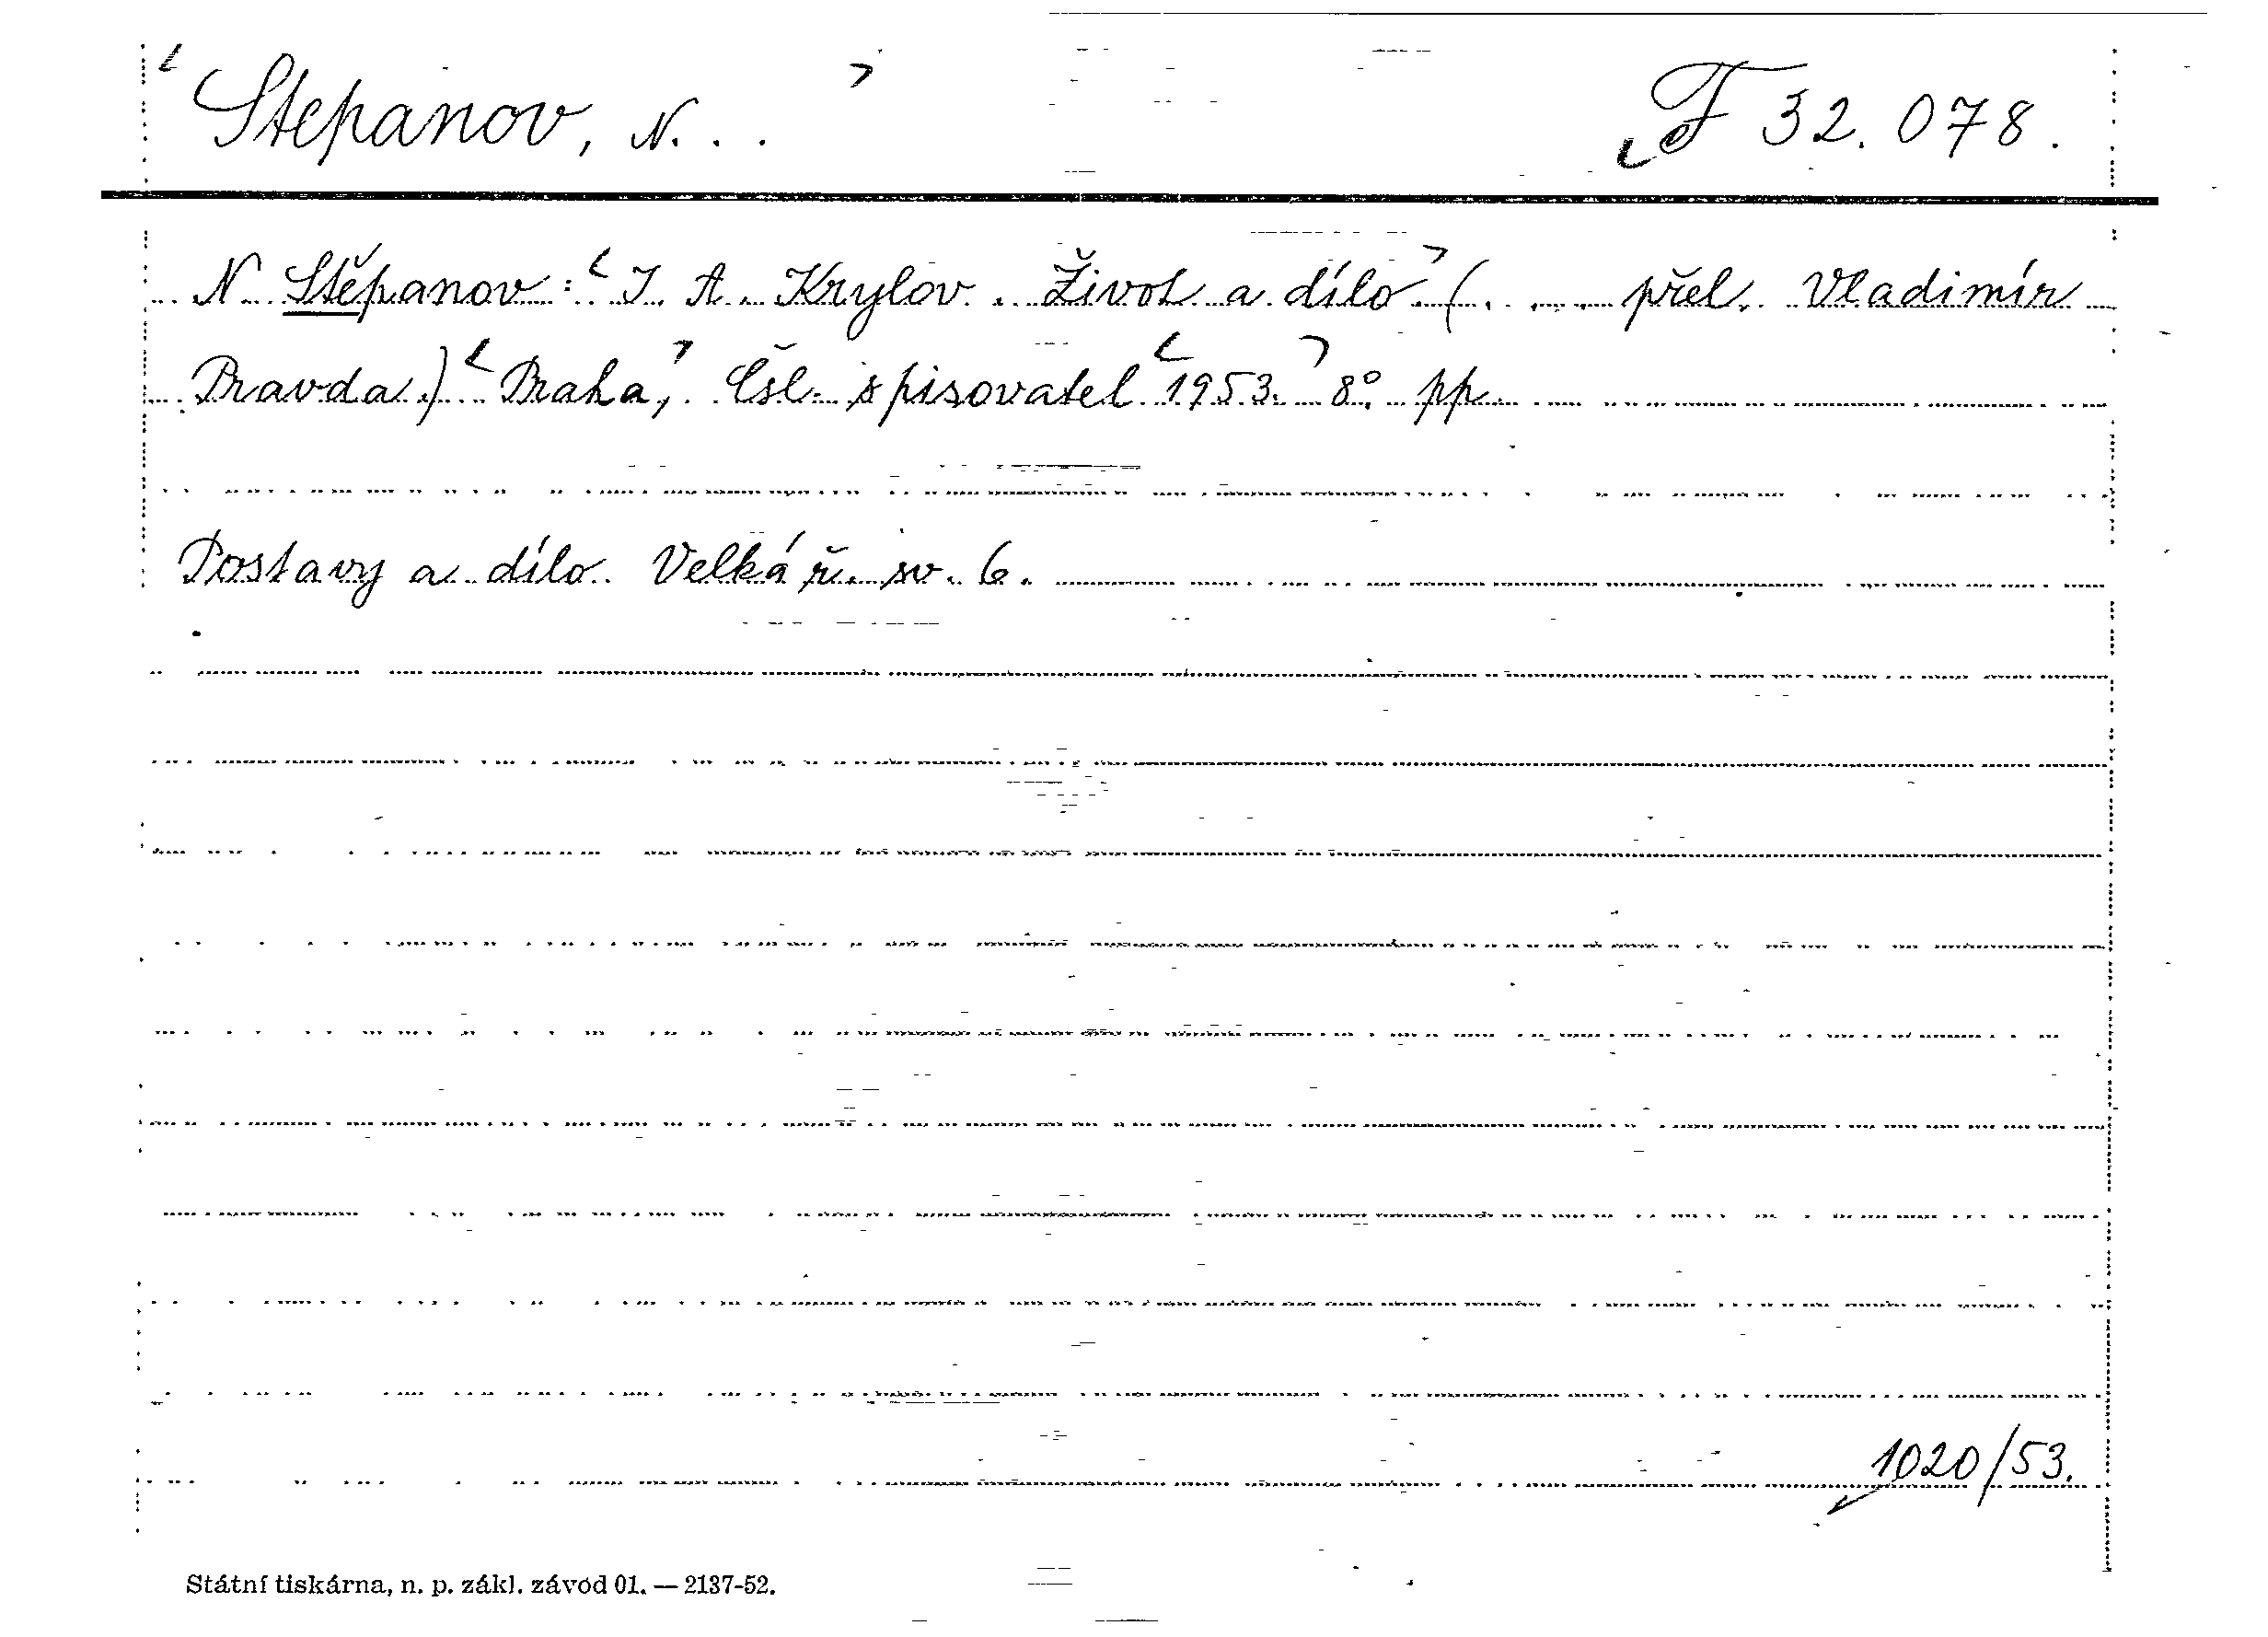 Stepanov, N. . .
F 32.078.
N. Stěpanov: I. A. Krylov. Život a dílo. (. . . přel. Vladimír
Pravda.) Praha, Čsl. spisovatel 1953. 8° pp.
Postavy a dílo. Velká ř. sv. 6.
1020/53.
Státní tiskárna, n. p. zákl. závod 01. — 2137-52.